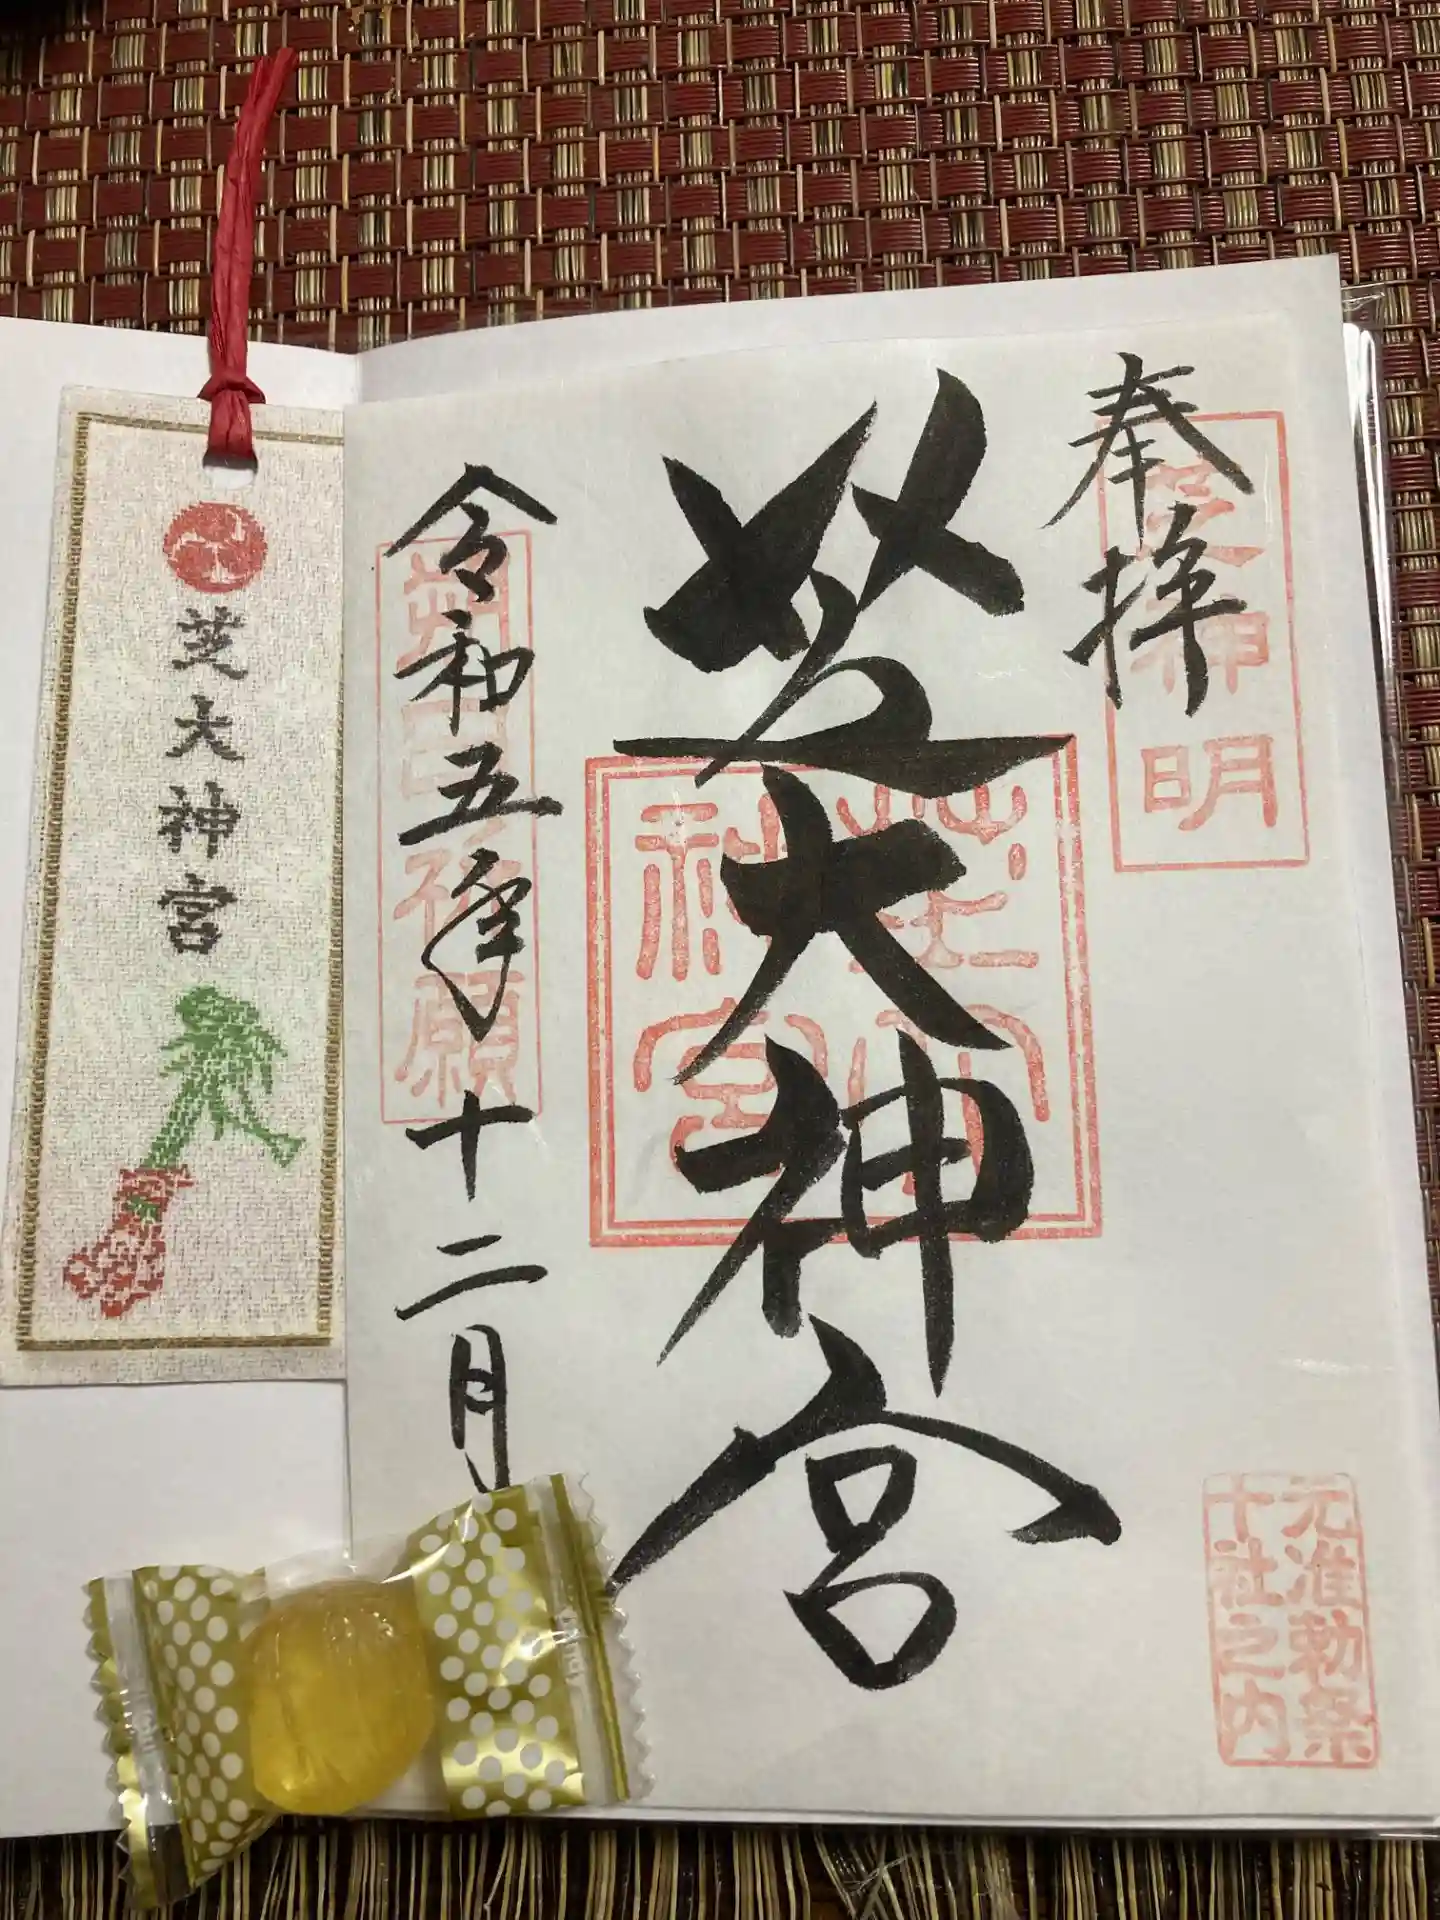 奉拝
芝神明
芝大神宮
令和五年十二月
朔日祈願
元准勅祭
十社之内
芝大神宮